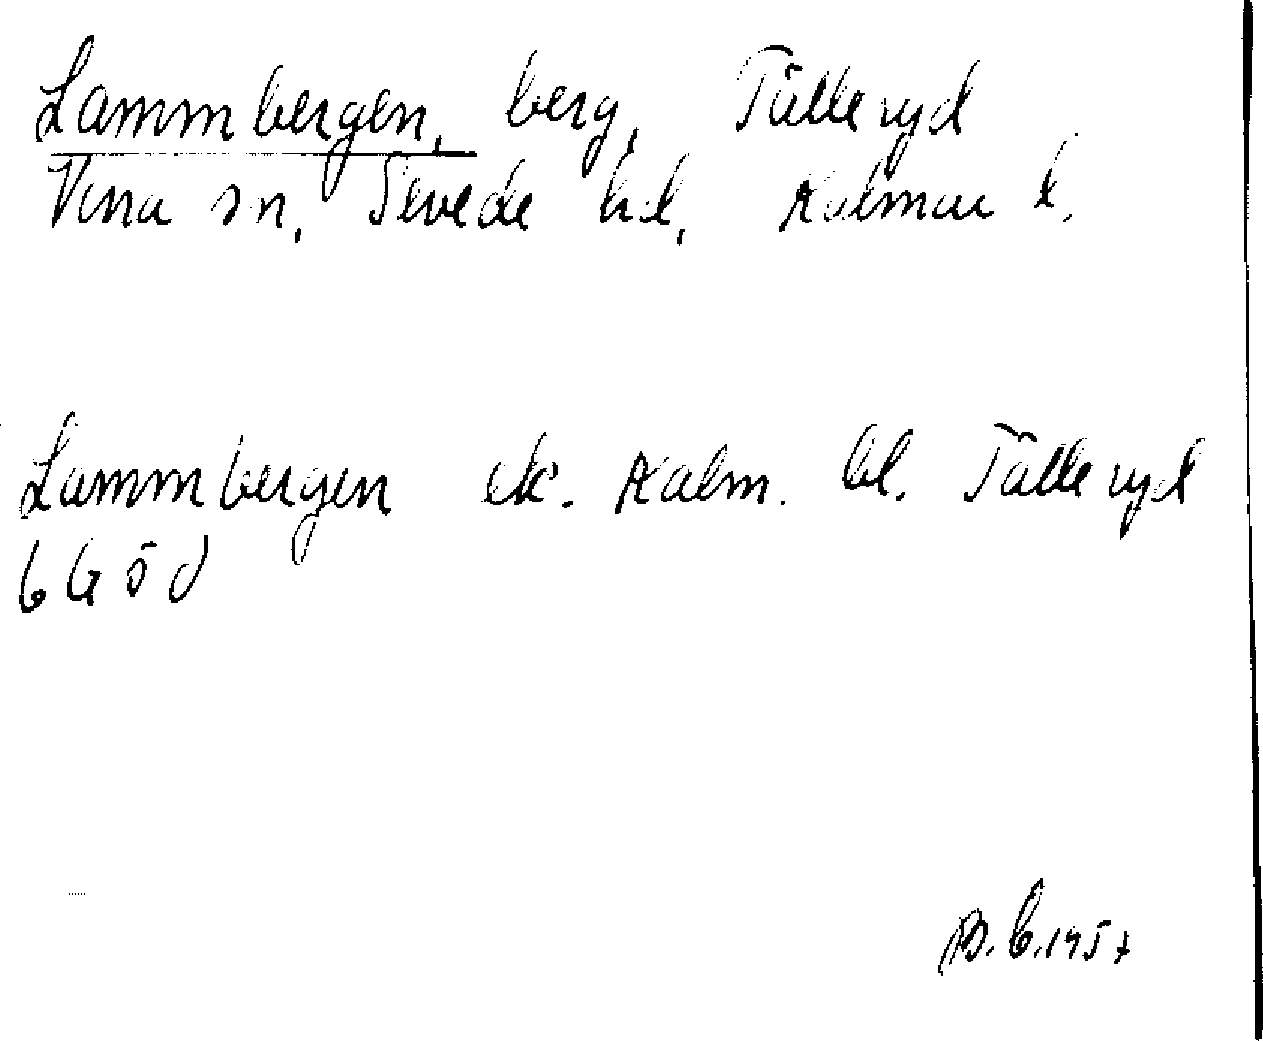 Lammbergen, berg, Tälleryd
Vena sn, Sevede hd, Kalmar l.
Lammbergen ek. Kalm. bl. Tälleryd
6G5d
B.E.1957